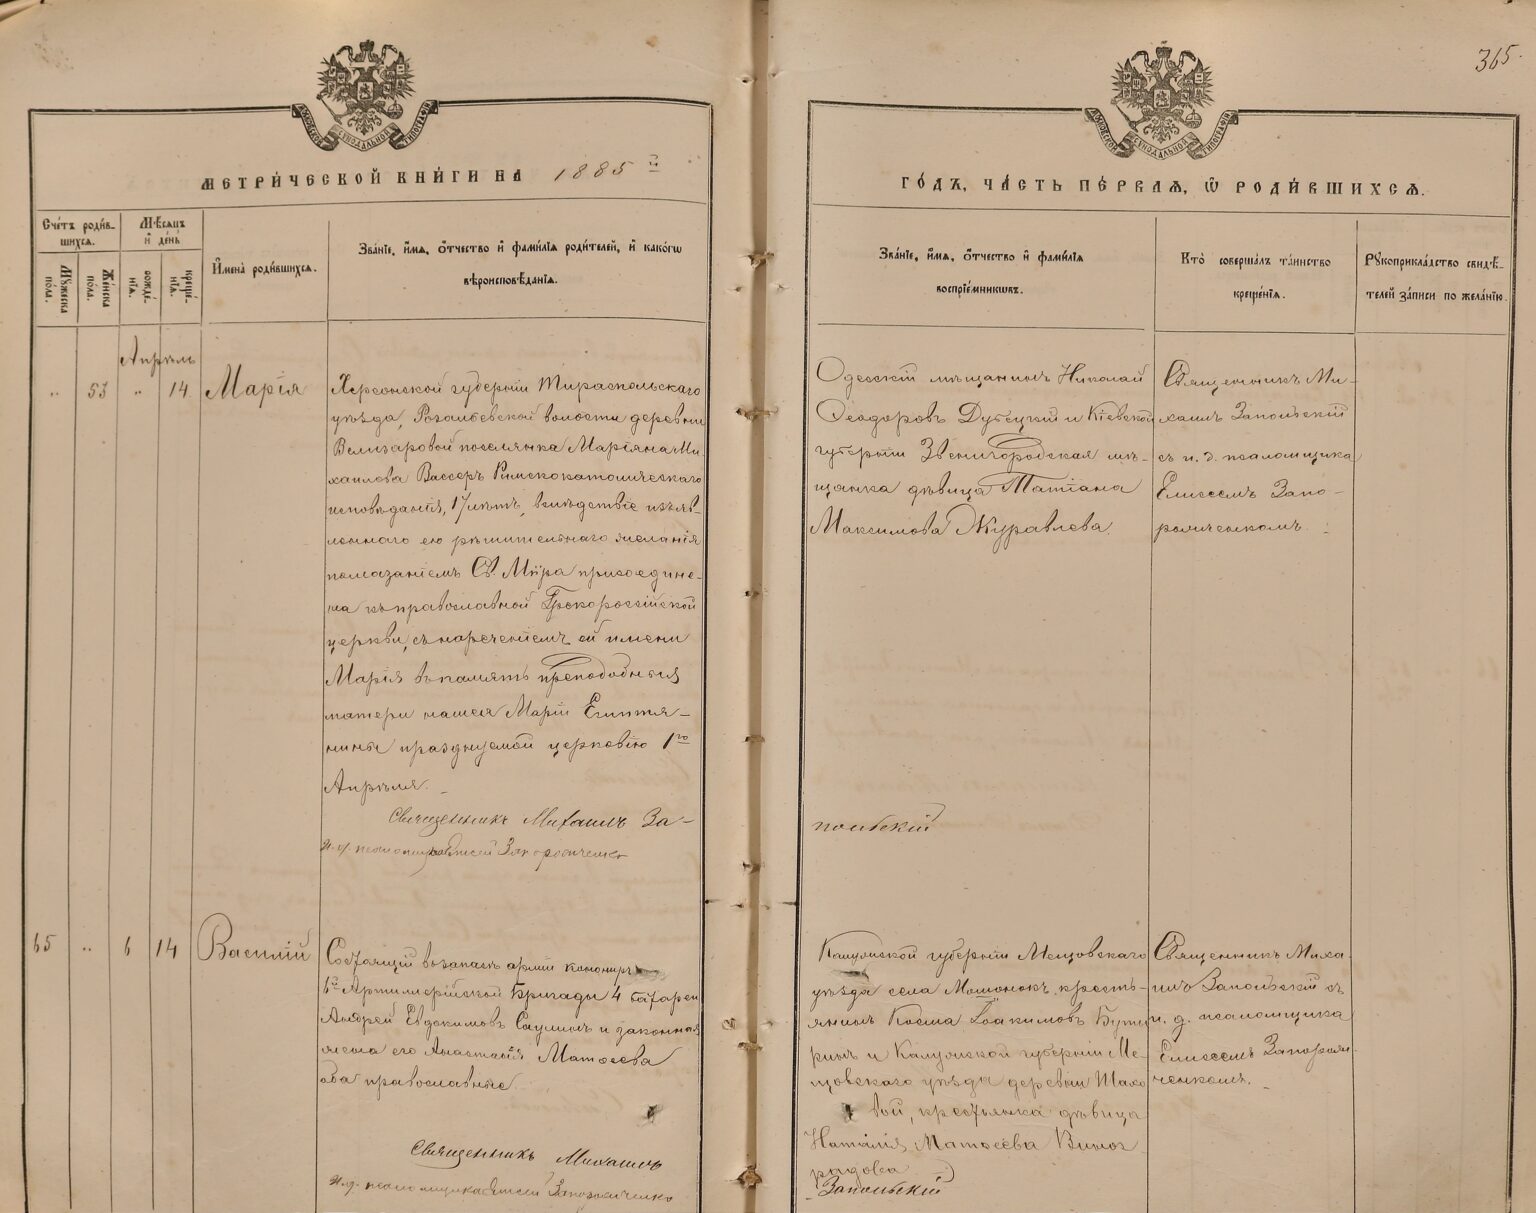 365.
МОСКОВСКОЙ СѴНОДАЛЬНОЙ ТИПОГРАФІИ
МОСКОВСКОЙ СѴНОДАЛЬНОЙ ТИПОГРАФІИ
МЕТРИ́ЧЕСКОЙ КНИ́ГИ НА 1885 й
ГО́ДЪ, ЧА́СТЬ ПЕ́РВАѦ, Ѡ҆ РОДИ́ВШИХСѦ.
Сче́тъ роди́в-
шихсѧ.
Мѣ́сѧцъ
и҆ де́нь
Мꙋ́жеска
пола.
Же́нска
пола.
рожде́-
нїѧ.
креще́-
нїѧ.
И҆мена̀ роди́вшихсѧ.
Зва́нїе, и҆́мѧ, ѻ҆́тчество и҆ фами́лїѧ роди́телей, и҆ како́гѡ
вѣроисповѣ́данїѧ.
Зва́нїе, и҆́мѧ, ѻ҆́тчество и҆ фами́лїѧ
воспрїе́мникѡвъ.
Кто̀ соверша́лъ та́инство
креще́нїѧ.
Рꙋкоприкла́дство свидѣ́-
телей за́писи по жела́нїю.
Апрѣль
„ 53 „ 14 Марія
Херсонской губерніи Тираспольскаго
уѣзда, волости деревни
поселянка Маріяна Ми-
хаилова Вассеръ Римскокатолическаго
исповѣданія, 17 лѣтъ, вслѣдствіе изъяв-
леннаго ею рѣшительнаго желанія
помазаніемъ Св. Мѵра присоедине-
на къ православной Грекороссійской
церкви, съ нареченіемъ ей имени
Марія въ память преподобныя
матери нашея Маріи Египтя-
ныни празднуемой церковію 1го
Апрѣля.
Священникъ Михаилъ За-
польскій
и. д. псаломщика Елисей Запорожченко
Одесскій мѣщанинъ Николай
Ѳеодоровъ Дубецкій и Кіевской
губерніи Звенигородская мѣ-
щанка дѣвица Татіана
Максимова Журавлева.
Священникъ Ми-
хаилъ Запольскій
съ и. д. псаломщика
Елисеемъ Запо-
рожченкомъ.
65 „ 6 14 Василій
Состоящій въ запасѣ арміи канониръ
6й Артиллерійской бригады 4 батареи
Андрей Евдокимовъ Саулинъ и законная
жена его Анастасія Матѳеева
оба православные
Священникъ Михаилъ
Запольскій
и. д. псаломщика Елисей Запорожченко
Калужской губерніи Мещовскаго
уѣзда села Мошонокъ кресть-
янинъ Косма Іоакимовъ Буты
ринъ и Калужской губерніи Ме-
щовскаго уѣзда деревни Шахо
вой, крестьянка дѣвица
Наталія Матѳеева Виног
радова
Священникъ Миха-
илъ Запольскій съ
и. д. псаломщика
Елисеемъ Запорож-
ченкомъ.